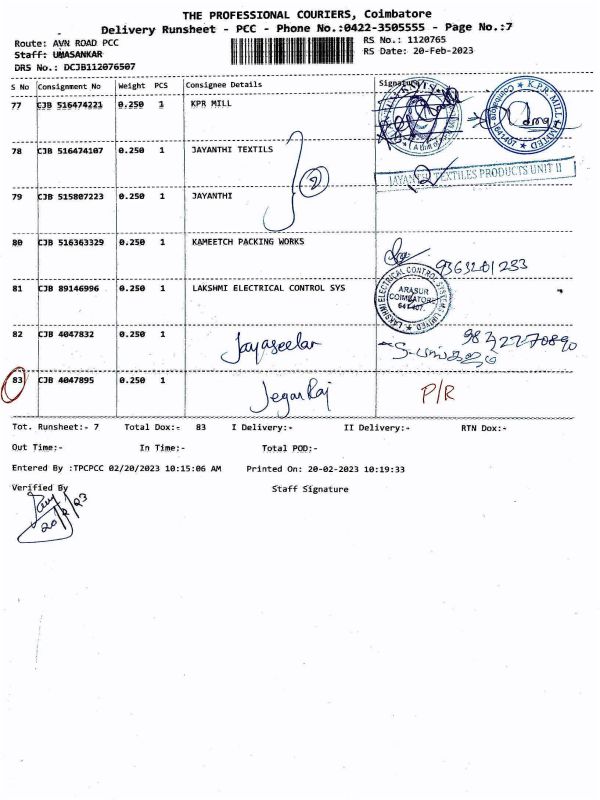 THE PROFESSIONAL COURIERS, Coimbatore
Delivery Runsheet - PCC - Phone No.:0422-3505555 - Page No.:7
Route: AVN ROAD PCC
RS No.: 1120765
Staff: UMASANKAR
RS Date: 20-Feb-2023
DRS No.: DCJB112076507
S No Consignment No Weight PCS Consignee Details Signature
77 CJB 516474221 0.250 1 KPR MILL
K.P.R. MILL LIMITED
Coimbatore - 641 407
78 CJB 516474107 0.250 1 JAYANTHI TEXTILS
2
JAYANTHI TEXTILES PRODUCTS UNIT II
79 CJB 515807223 0.250 1 JAYANTHI
80 CJB 516363329 0.250 1 KAMEETCH PACKING WORKS
9363201233
81 CJB 89146996 0.250 1 LAKSHMI ELECTRICAL CONTROL SYS
LAKSHMI ELECTRICAL CONTROL SYSTEMS LIMITED
ARASUR
COIMBATORE
641407.
82 CJB 4047832 0.250 1 Jayaseelan
83 CJB 4047895 0.250 1 Jegan Raj P/R
Tot. Runsheet:- 7 Total Dox:- 83 I Delivery:- II Delivery:- RTN Dox:-
Out Time:- In Time:- Total POD:-
Entered By :TPCPCC 02/20/2023 10:15:06 AM Printed On: 20-02-2023 10:19:33
Verified By Staff Signature
20/2/23